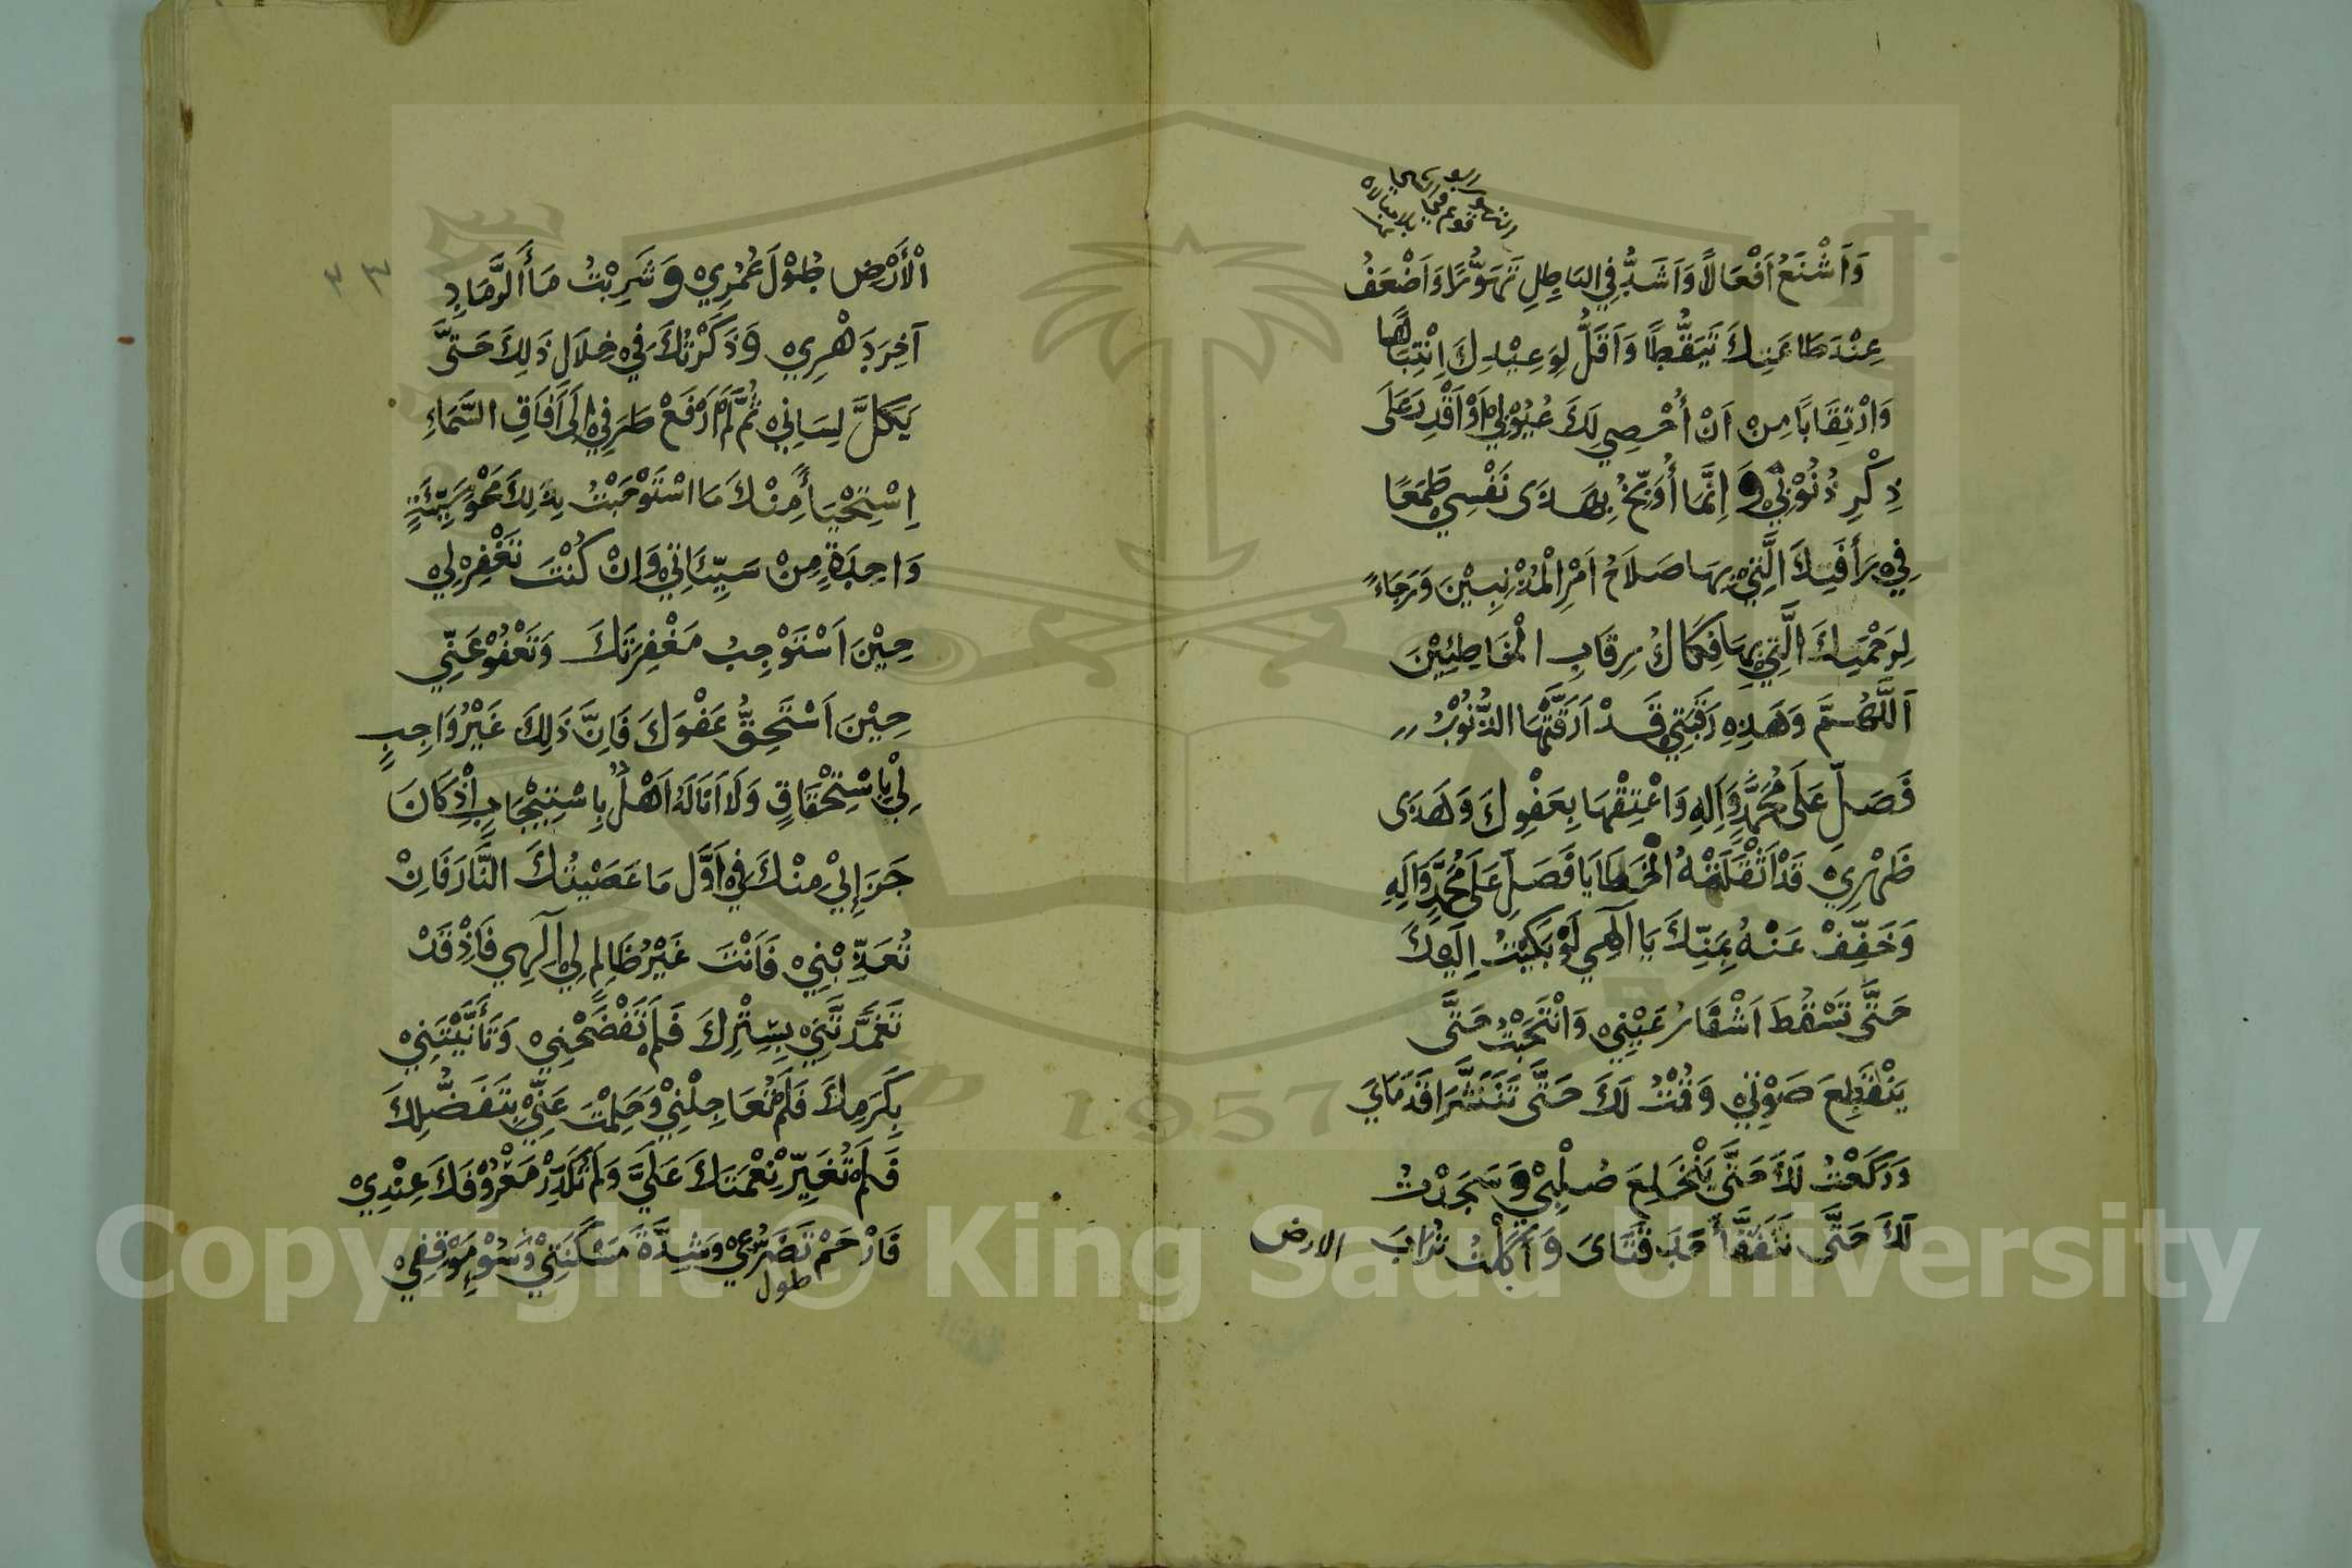 وَاَشْنَعُ اَفْعَالًا وَاَشَدُّ فِي البَاطِلِ تَهَوُّرًا وَاَضْعَفُ
عِنْدَ طَاعَتِكَ تَيَقُّظًا وَاَقَلُّ لِوَعِيْدِكَ اِنْتِبَاهًا
وَارْتِقَابًا مِنْ اَنْ اُحْصِي لَكَ عُيُوْبِيْ اَوْ اَقْدِرَ عَلَى
ذِكْرِ ذُنُوْبِيْ وَ اِنَّمَا اُوَبِّخُ بِهَذَى نَفْسِي طَمَعًا
فِيْ رَأفَتِكَ الَّتِيْ بِهَا صَلَاحُ اَمْرِ الْمُذْنِبِيْنَ وَرَجَاءً
لِرَحْمَتِكَ الَّتِيْ بِهَا فِكَاكُ رِقَابِ الْخَاطِئِيْنَ
اَللَّهُمَّ وَهَذِهِ رَقَبَتِي قَدْ اَرَقَّتْهَا الذُّنُوْبُ
فَصَلِّ عَلَى مُحَمَّدٍ وَآلِهِ وَاعْتِقْهَا بِعَفْوِكَ وَهَذَى
ظَهْرِيْ قَدْ اَثْقَلَتْهُ الْخَطَايَا فَصَلِّ عَلَى مُحَمَّدٍ وَآلِهِ
وَخَفِّفْ عَنْهُ بِمَنِّكَ يَا اَلٰهِي لَوْ بَكَيْتُ اِلَيْكَ
حَتَّى تَسْقُطَ اَشْفَارُ عَيْنِيْ وَانْتَحَبْتُ حَتَّى
يَنْقَطِعَ صَوْتِيْ وَقُمْتُ لَكَ حَتَّى تَنَشَّرَ قَدَمَايَ
وَرَكَعْتُ لَكَ حَتَّى يَنْخَلِعَ صُلْبِيْ وَسَجَدْتُ
لَكَ حَتَّى تَتَفَقَّأَ حَدَقَتَاىَ وَأَكَلْتُ تُرَابَ الارض
اْلأَرْضِ طُوْلَ عُمْرِيْ وَ شَرِبْتُ مَاَ الرَّمَادِ
آخِرَ دَهْرِيْ وَذَكَرْتُكَ فِيْ خِلَالِ ذَلِكَ حَتَّى
يَكِلَّ لِسَانِيْ ثُمَّ لَمْ اَرْفَعْ طَرَفِيْ اِلَى آفَاقِ السَّمَاءِ
اِسْتِحْيَأً مِنْكَ مَا اسْتَوْجَبْتُ بِذَلِكَ مَحْوَ سَيِّئَةٍ
وَاحِدَةٍ مِنْ سَيِّئَاتِيْ وَاِنْ كُنْتَ تَغْفِرُ لِيْ
حِيْنَ اَسْتَوْجِبُ مَغْفِرَتَكَ وَتَعْفُوْ عَنِّي
حِيْنَ اَسْتَحِقُّ عَفْوَكَ فَاِنَّ ذَلِكَ غَيْرُ وَاجِبٍ
لِيْ بِاسْتِحْقَاقٍ وَلَا اَنَا لَهُ اَهْلٌ بِاسْتِيْجَابٍ اِذْ كَانَ
جَزَائِيْ مِنْكَ فِيْ اَوَّلِ مَا عَصَيْتُكَ النَّارَ فَاِنْ
تُعَذِّبْنِيْ فَاَنْتَ غَيْرُ ظَالِمٍ لِيْ اِلٰهِي فَاِذْ قَدْ
تَغَمَّدْتَنِيْ بِسِتْرِكَ فَلَمْ تَفْضَحْنِيْ وَتَأَنَّيْتَنِيْ
بِكَرَمِكَ فَلَمْ تُعَاجِلْنِيْ وَحَلِمْتَ عَنِّيْ بِتَفَضُّلِكَ
فَلَمْ تُغَيِّرْ نِعْمَتَكَ عَلَيَّ وَلَمْ تُكَدِّرْ مَعْرُوْفَكَ عِنْدِيْ
فَارْحَمْ تَضَرُّعِيْ وَشِدَّةَ مَسْكَنَتِيْ وَسُوْءَ مَوْقِفِيْ
طول
Copyright © King Saud University
1957